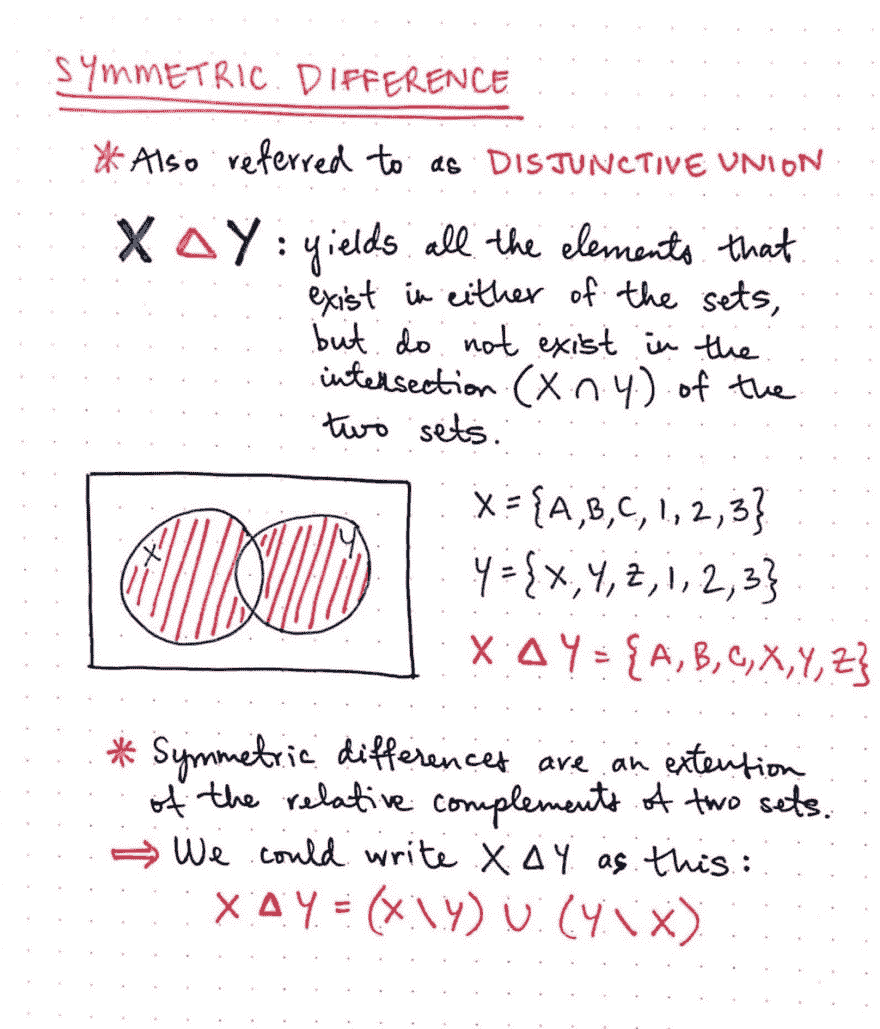 SYMMETRIC DIFFERENCE
* Also referred to as DISJUNCTIVE UNION
X Δ Y : yields all the elements that
exist in either of the sets,
but do not exist in the
intersection (X ∩ Y) of the
two sets.
X Y
X = {A, B, C, 1, 2, 3}
Y = {X, Y, Z, 1, 2, 3}
X Δ Y = {A, B, C, X, Y, Z}
* Symmetric differences are an extention
of the relative complements of two sets.
⇒ We could write X Δ Y as this:
X Δ Y = (X \ Y) ∪ (Y \ X)